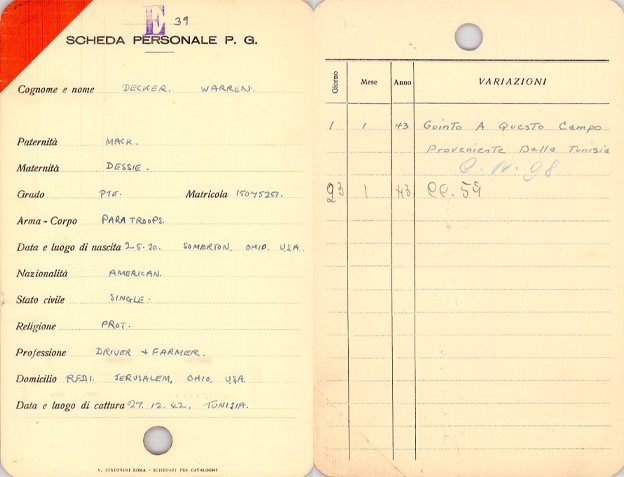 E 39
SCHEDA PERSONALE P. G.
Cognome e nome DECKER. WARREN.
Paternità MACK.
Maternità DESSIE.
Grado PTE. Matricola 15045251.
Arma - Corpo PARATROOPS.
Data e luogo di nascita 2.5.20. SOMERTON. OHIO. U.S.A.
Nazionalità AMERICAN.
Stato civile SINGLE.
Religione PROT.
Professione DRIVER + FARMER.
Domicilio RED1. JERUSALEM, OHIO, USA.
Data e luogo di cattura 27.12.42. TUNISIA.
A. STADERINI ROMA - SCHEDARI PER CATALOGHI
Giorno Mese Anno VARIAZIONI
1 1 43 Guinto A Questo Campo
Proveniente Dalla Tunisia
C. N. 98
23 1 43 CC. 59